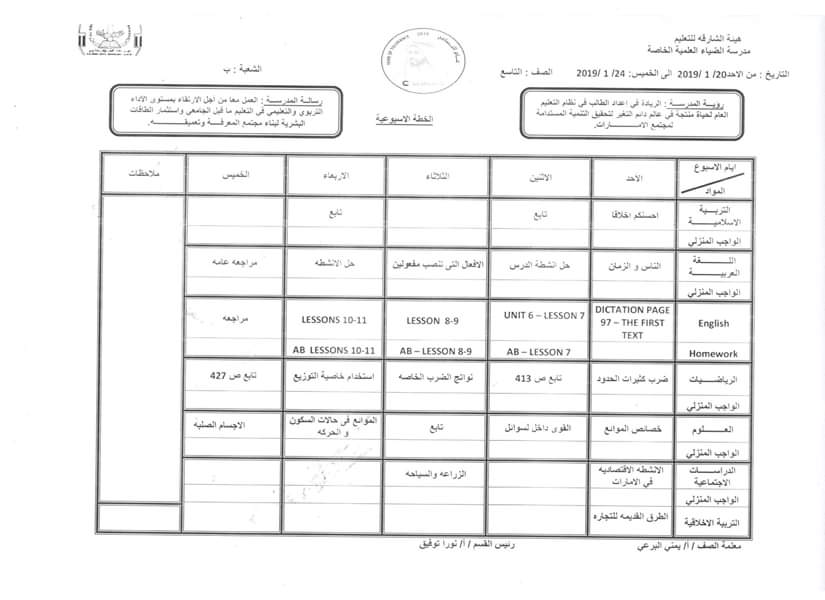 هيئة الشارقه للتعليم
مدرسة الضياء العلمية الخاصة
التاريخ : من الاحد20/ 1/ 2019 الى الخميس: 24/ 1/ 2019
الصف : التاسع
الشعبة : ب
رؤيـة المدرســة : الريادة في اعداد الطالب في نظام التعليم
العام لحياة منتجة في عالم دائم التغير لتحقيق التنمية المستدامة
لمجتمع الامـــــارات.
الخطة الاسبوعية
رسالة المدرسـة : العمل معا من اجل الارتقاء بمستوى الاداء
التربوي والتعليمي في التعليم ما قبل الجامعي واستثمار الطاقات
البشرية لبناء مجتمع المعرفـــة وتعميقـــــه.
ايام الاسبوع
المواد
الاحد
الاثنين
الثلاثاء
الاربعاء
الخميس
ملاحظات
التربـــية
الاسلاميـــــة
احسنكم اخلاقا
تابع
تابع
الواجب المنزلي
اللـــــغة
العربيـــــة
الناس و الزمان
حل انشطة الدرس
الافعال التى تنصب مفعولين
حل الانشطه
مراجعه عامه
الواجب المنزلي
English
DICTATION PAGE
97 – THE FIRST
TEXT
UNIT 6 – LESSON 7
LESSON 8-9
LESSONS 10-11
مراجعه
Homework
AB – LESSON 7
AB – LESSON 8-9
AB LESSONS 10-11
الرياضـــيات
ضرب كثيرات الحدود
تابع ص 413
نواتج الضرب الخاصه
استخدام خاصية التوزيع
تابع ص 427
الواجب المنزلي
العـــــلوم
خصائص الموائع
القوى داخل لسوائل
تابع
الموائع فى حالات السكون
و الحركه
الاجسام الصلبه
الواجب المنزلي
الدراســـات
الاجتماعية
الانشطه الاقتصاديه
في الامارات
الزراعه والسياحه
الواجب المنزلي
التربية الاخلاقية
الطرق القديمه للتجاره
معلمة الصف / أ/ يمني البرعي
رئيس القسم / أ/ نورا توفيق